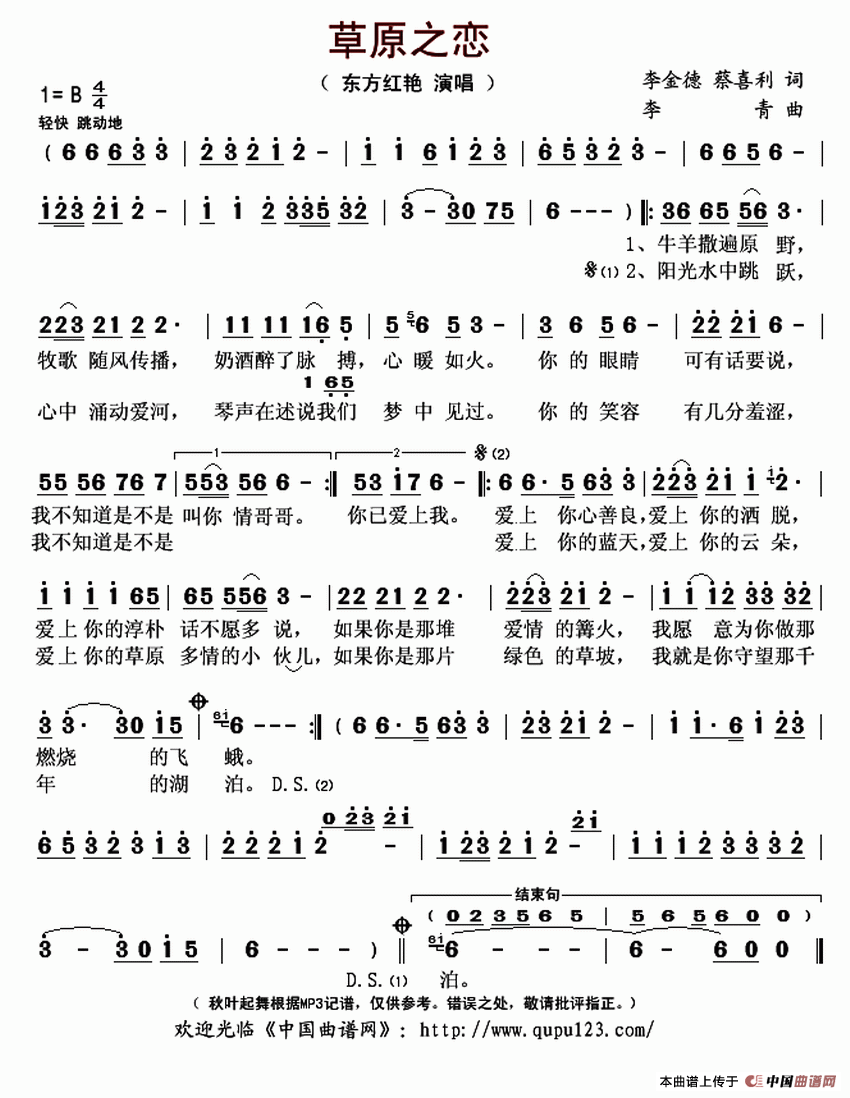 草原之恋
1= B 4/4
（ 东方红艳 演唱 ）
李金德 蔡喜利 词
李 青 曲
轻快 跳动地
( 6 6 6 3 3 | 2 3 2 1 2 - | 1 1 6 1 2 3 | 6 5 3 2 3 - | 6 6 5 6 - |
1 2 3 2 1 2 - | 1 1 2 3 3 5 3 2 | 3 - 3 0 7 5 | 6 - - - ) ‖: 3 6 6 5 5 6 3 · |
1、牛羊撒遍原 野，
𝄋(1) 2、阳光水中跳 跃，
2 2 3 2 1 2 2 · | 1 1 1 1 1 6 5 | 5 5 6 5 3 - | 3 6 5 6 - | 2 2 2 1 6 - |
牧歌 随风传播， 奶酒醉了脉 搏，心 暖 如火。 你 的 眼睛 可有话要说，
1 6 5
心中 涌动爱河， 琴声在述说我们 梦 中 见过。 你 的 笑容 有几分羞涩，
1 2 𝄋(2)
5 5 5 6 7 6 7 | 5 5 3 5 6 6 - :‖ 5 3 1 7 6 - ‖: 6 6 · 5 6 3 3 | 2 2 3 2 1 1 i 2 · |
我不知道是不是 叫你 情哥哥。 你已爱上我。 爱上 你心善良，爱上 你的洒 脱，
我不知道是不是 爱上 你的蓝天，爱上 你的云 朵，
1 1 1 1 6 5 | 6 5 5 5 6 3 - | 2 2 2 1 2 2 · | 2 2 3 2 1 2 - | 1 1 1 2 3 3 3 2 |
爱上 你的淳朴 话不愿多 说， 如果你是那堆 爱情 的篝火， 我愿 意为你做那
爱上 你的草原 多情的小 伙儿，如果你是那片 绿色 的草坡， 我就是你守望那千
3 3 · 3 0 1 5 | 6i 6 - - - :‖ ( 6 6 · 5 6 3 3 | 2 3 2 1 2 - | 1 1 · 6 1 2 3 |
燃烧 的飞 蛾。
年 的湖 泊。D.S.(2)
0 2 3 2 1 2 1
6 5 3 2 3 1 3 | 2 2 2 1 2 - | 1 2 3 2 1 2 - | 1 1 1 2 3 3 3 2 |
结束句
( 0 2 3 5 6 5 | 5 6 5 6 0 0 )
3 - 3 0 1 5 | 6 - - - ) ‖ 6i 6 - - - | 6 - 6 0 0 ‖
D.S.(1) 泊。
（ 秋叶起舞根据MP3记谱，仅供参考。错误之处，敬请批评指正。）
欢迎光临《中国曲谱网》：http://www.qupu123.com/
本曲谱上传于 中国曲谱网